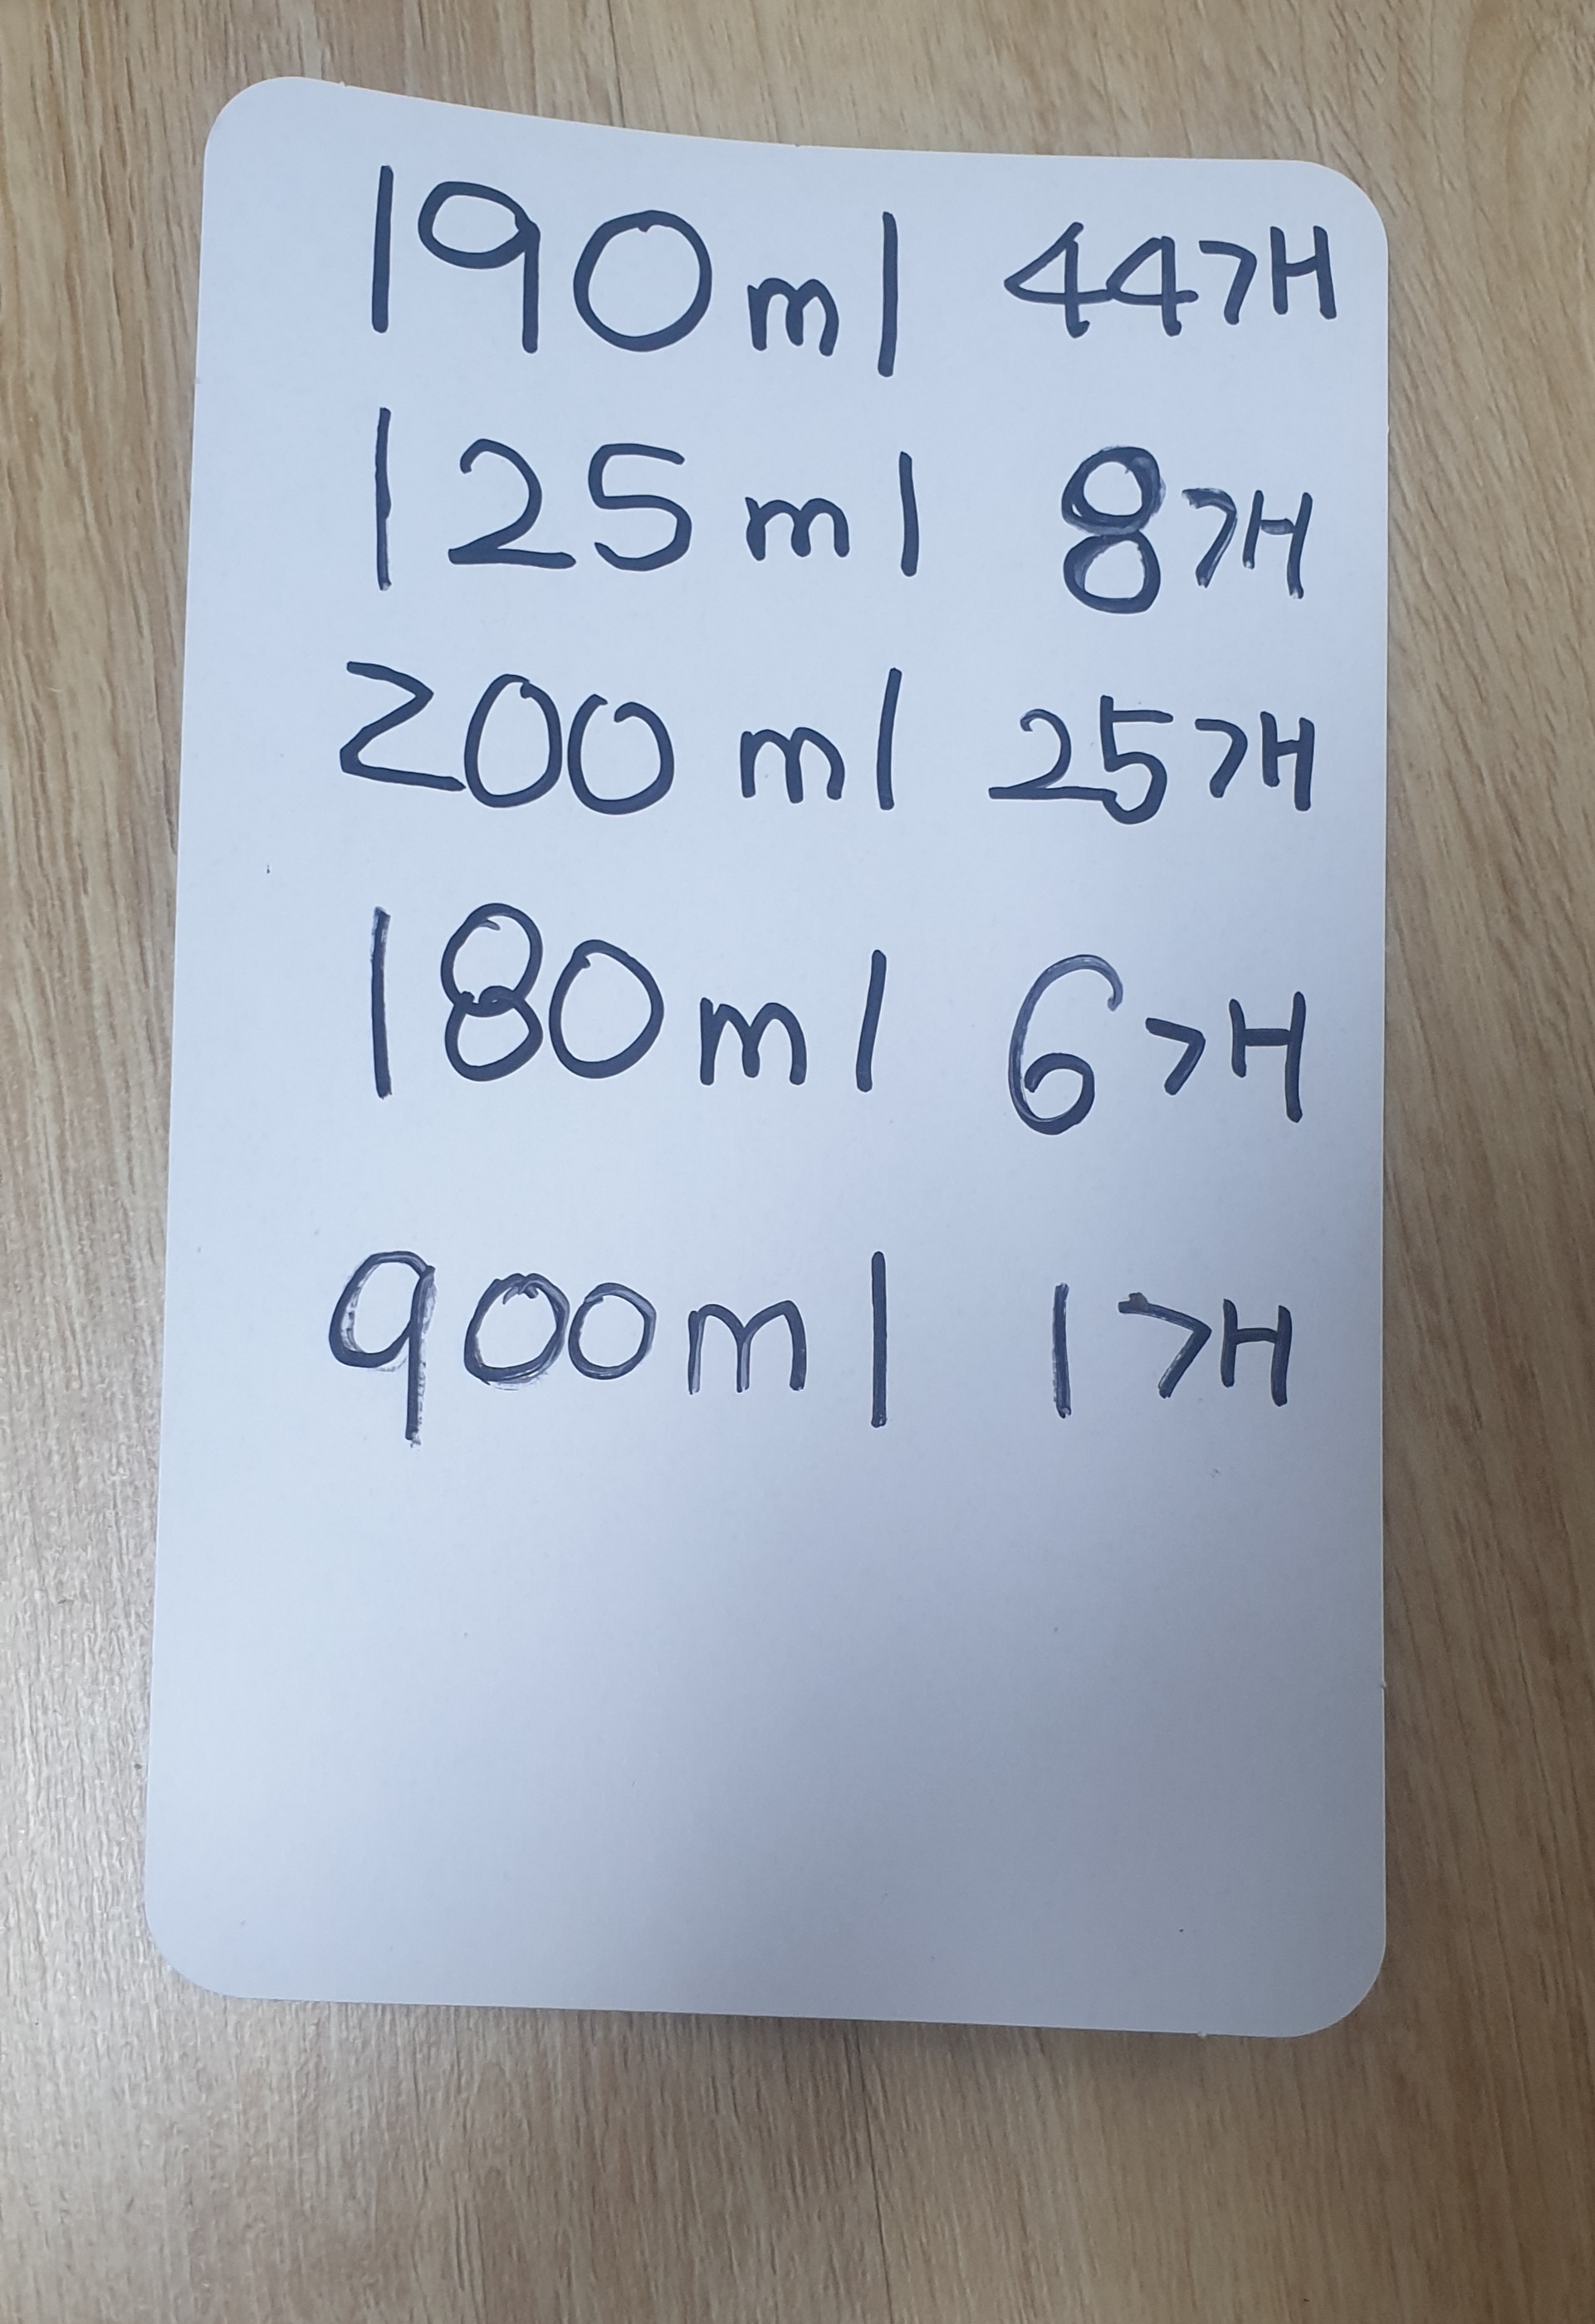 190ml 44개
125ml 8개
200ml 25개
180ml 6개
900ml 1개